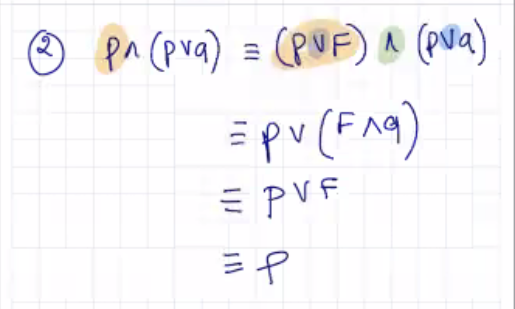 ② p∧(p∨q) ≡ (p∨F) ∧ (p∨q)
≡ p∨(F∧q)
≡ p∨F
≡ p